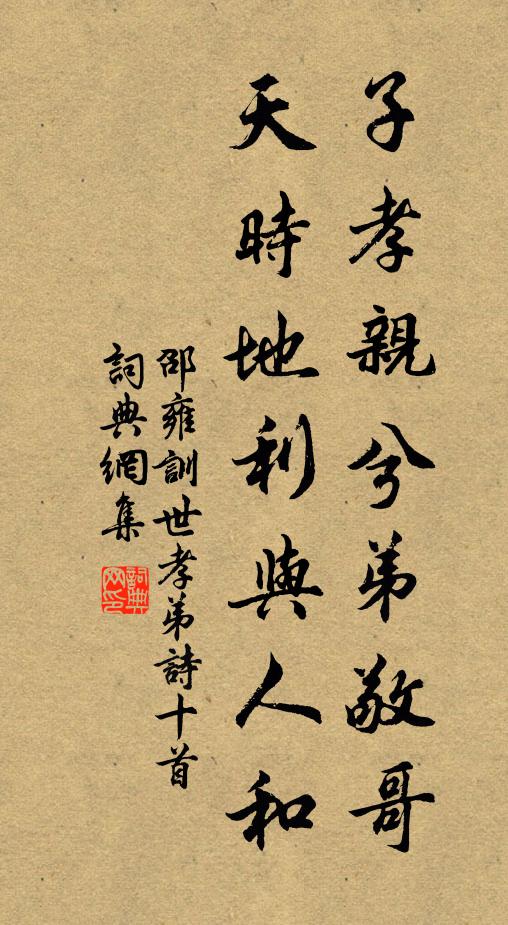 子孝親兮弟敬哥
天時地利與人和
邵雍訓世孝弟詩十首
詞典網集
詞典网印